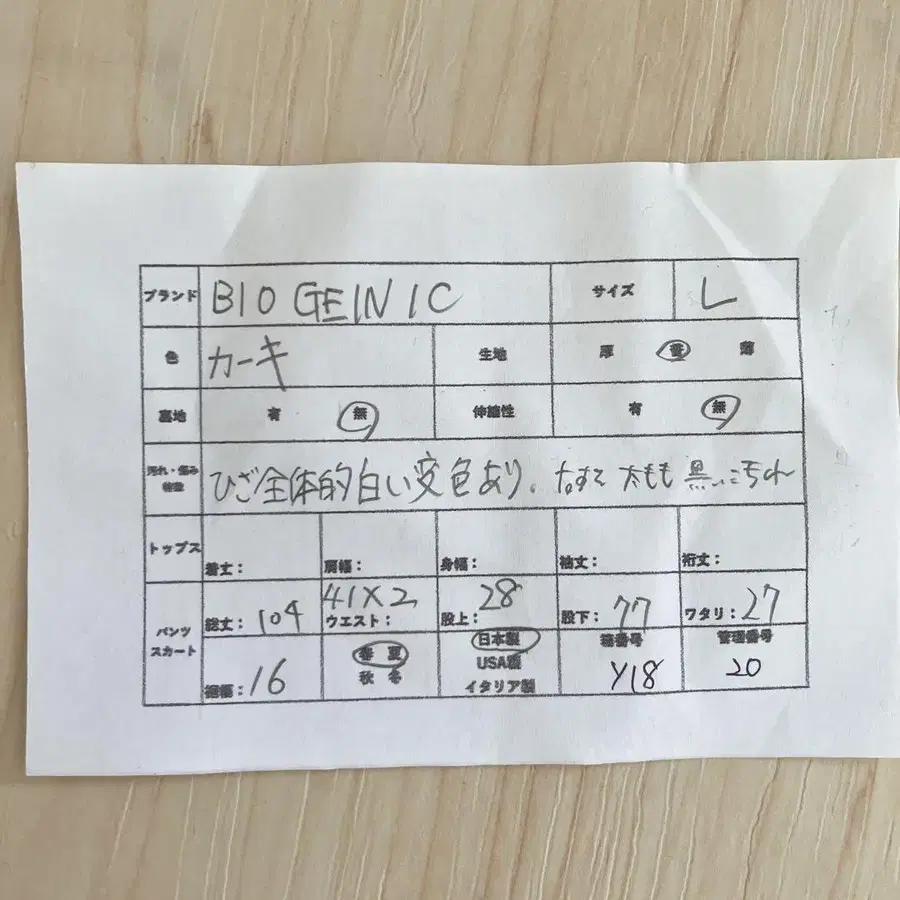 ブランド BIO GENIC サイズ L
色 カーキ 生地 厚 普 薄
裏地 有 無 伸縮性 有 無
汚れ・傷み
ひざ全体的白い変色あり。右すそ 太もも 黒い汚れ
トップス 着丈: 肩幅: 身幅: 袖丈: 裄丈:
パンツ スカート 総丈:104 41×2 ウエスト: 股上:28 股下:77 ワタリ:27
裾幅:16 春 夏 秋 冬 日本製 USA製 イタリア製 箱番号 Y18 管理番号 20